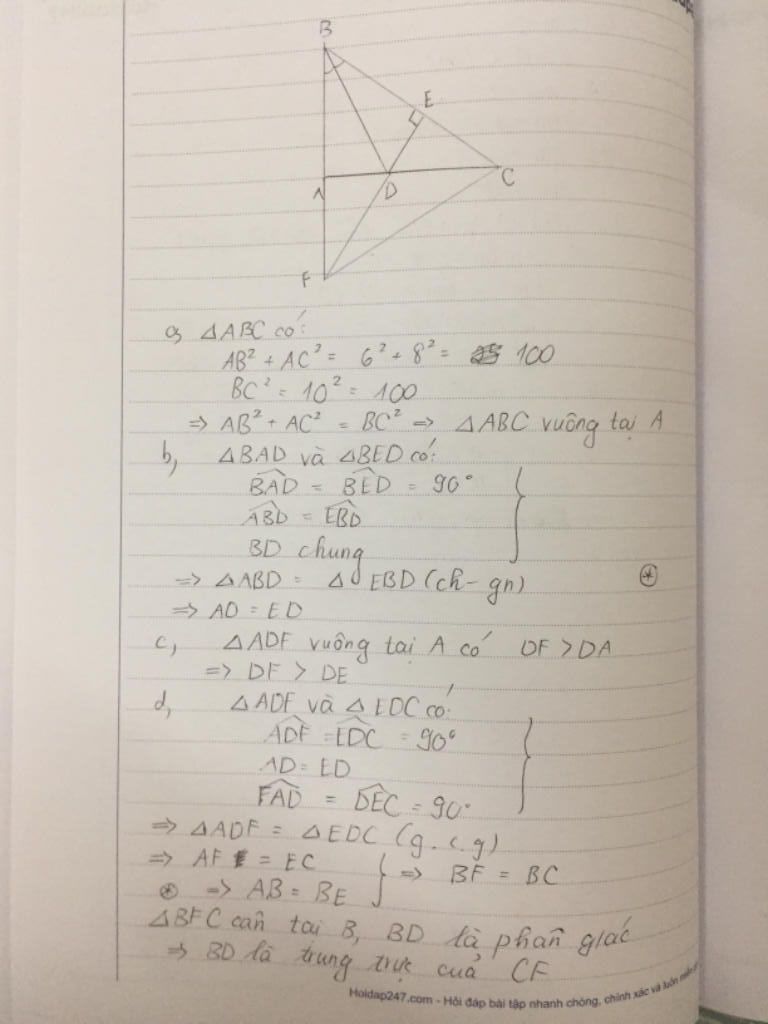 B
E
A
D
C
F
a, △ABC có:
AB² + AC² = 6² + 8² = 100
BC² = 10² = 100
=> AB² + AC² = BC² => △ABC vuông tại A
b, △BAD và △BED có:
\widehat{BAD} = \widehat{BED} = 90°
\widehat{ABD} = \widehat{EBD}
BD chung
=> △ABD = △EBD (ch - gn) (*)
=> AD = ED
c, △ADF vuông tại A có DF > DA
=> DF > DE
d, △ADF và △EDC có:
\widehat{ADF} = \widehat{EDC} = 90°
AD = ED
\widehat{FAD} = \widehat{DEC} = 90°
=> △ADF = △EDC (g.c.g)
=> AF = EC
(*) => AB = BE } => BF = BC
△BFC cân tại B, BD là phân giác
=> BD là trung trực của CF
Hoidap247.com - Hỏi đáp bài tập nhanh chóng, chính xác và luôn miễn